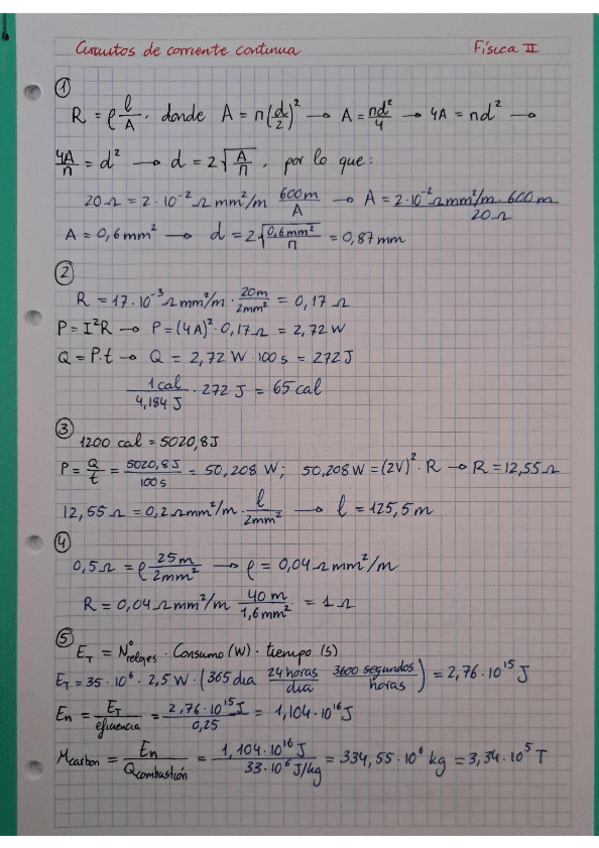 Circuitos de corriente continua Física II
①
R = ρ l/A, donde A = π(d/2)² → A = πd²/4 → 4A = πd² →
4A/π = d² → d = 2√(A/π), por lo que:
20 Ω = 2·10⁻² Ω mm²/m 600m/A → A = 2·10⁻² Ω mm²/m · 600m/20 Ω
A = 0,6 mm² → d = 2√(0,6mm²/π) = 0,87 mm
②
R = 17·10⁻³ Ω mm²/m · 20m/2mm² = 0,17 Ω
P = I²R → P = (4A)² · 0,17 Ω = 2,72 W
Q = P·t → Q = 2,72 W · 100 s = 272 J
1 cal/4,184 J · 272 J = 65 cal
③
1200 cal = 5020,8 J
P = Q/t = 5020,8 J/100 s = 50,208 W; 50,208 W = (2V)² · R → R = 12,55 Ω
12,55 Ω = 0,2 Ω mm²/m · l/2mm² → l = 125,5 m
④
0,5 Ω = ρ 25m/2mm² → ρ = 0,04 Ω mm²/m
R = 0,04 Ω mm²/m 40m/1,6mm² = 1 Ω
⑤
E_T = Nº relojes · Consumo (W) · tiempo (s)
E_T = 35·10⁶ · 2,5 W · (365 dia 24 horas/dia 3600 segundos/horas) = 2,76·10¹⁵ J
En = E_T/eficiencia = 2,76·10¹⁵ J/0,25 = 1,104·10¹⁶ J
M carbon = En/Q combustión = 1,104·10¹⁶ J/33·10⁶ J/kg = 334,55·10⁶ kg = 3,34·10⁵ T